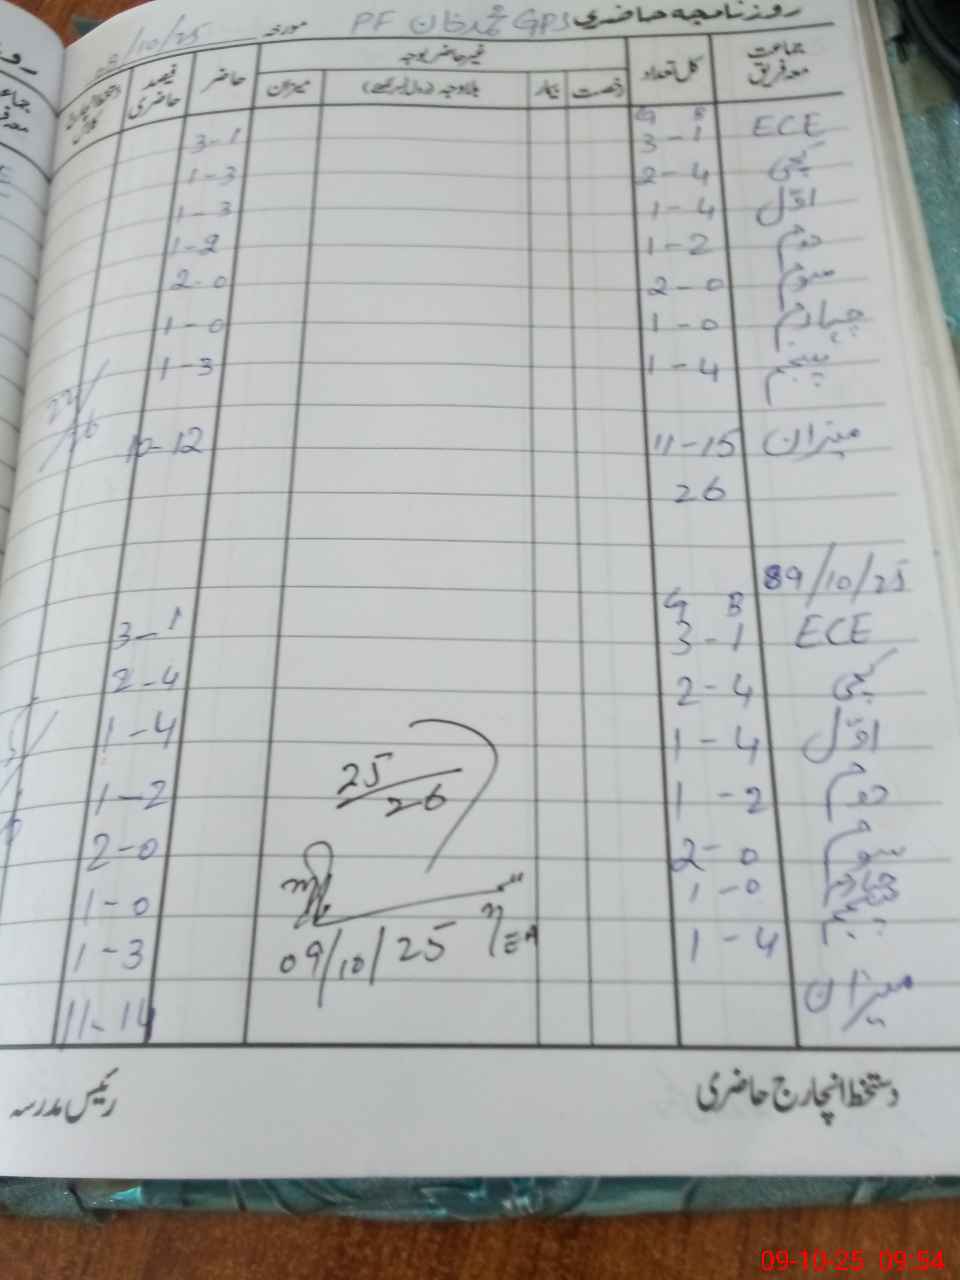 روزنامچہ حاضری GPS محمد خان PF مورخہ /10/25
جماعت معہ فریق کل تعداد غیر حاضر بوجہ حاضر فیصد حاضری
رخصت بیمار بلاوجہ میزان
G B
ECE 3-1 3-1
کچی 2-4 1-3
اوّل 1-4 1-3
دوم 1-2 1-2
سوم 2-0 2-0
چہارم 1-0 1-0
پنجم 1-4 1-3
22/26
میزان 11-15 10-12
26
89/10/25
G B
ECE 3-1 3-1
کچی 2-4 2-4
اوّل 1-4 1-4
دوم 1-2 1-2
سوم 2-0 2-0
چہارم 1-0 1-0
پنجم 1-4 1-3
میزان 11-14
25/26
09/10/25
دستخط انچارج حاضری رئیس مدرسہ
09-10-25 09:54